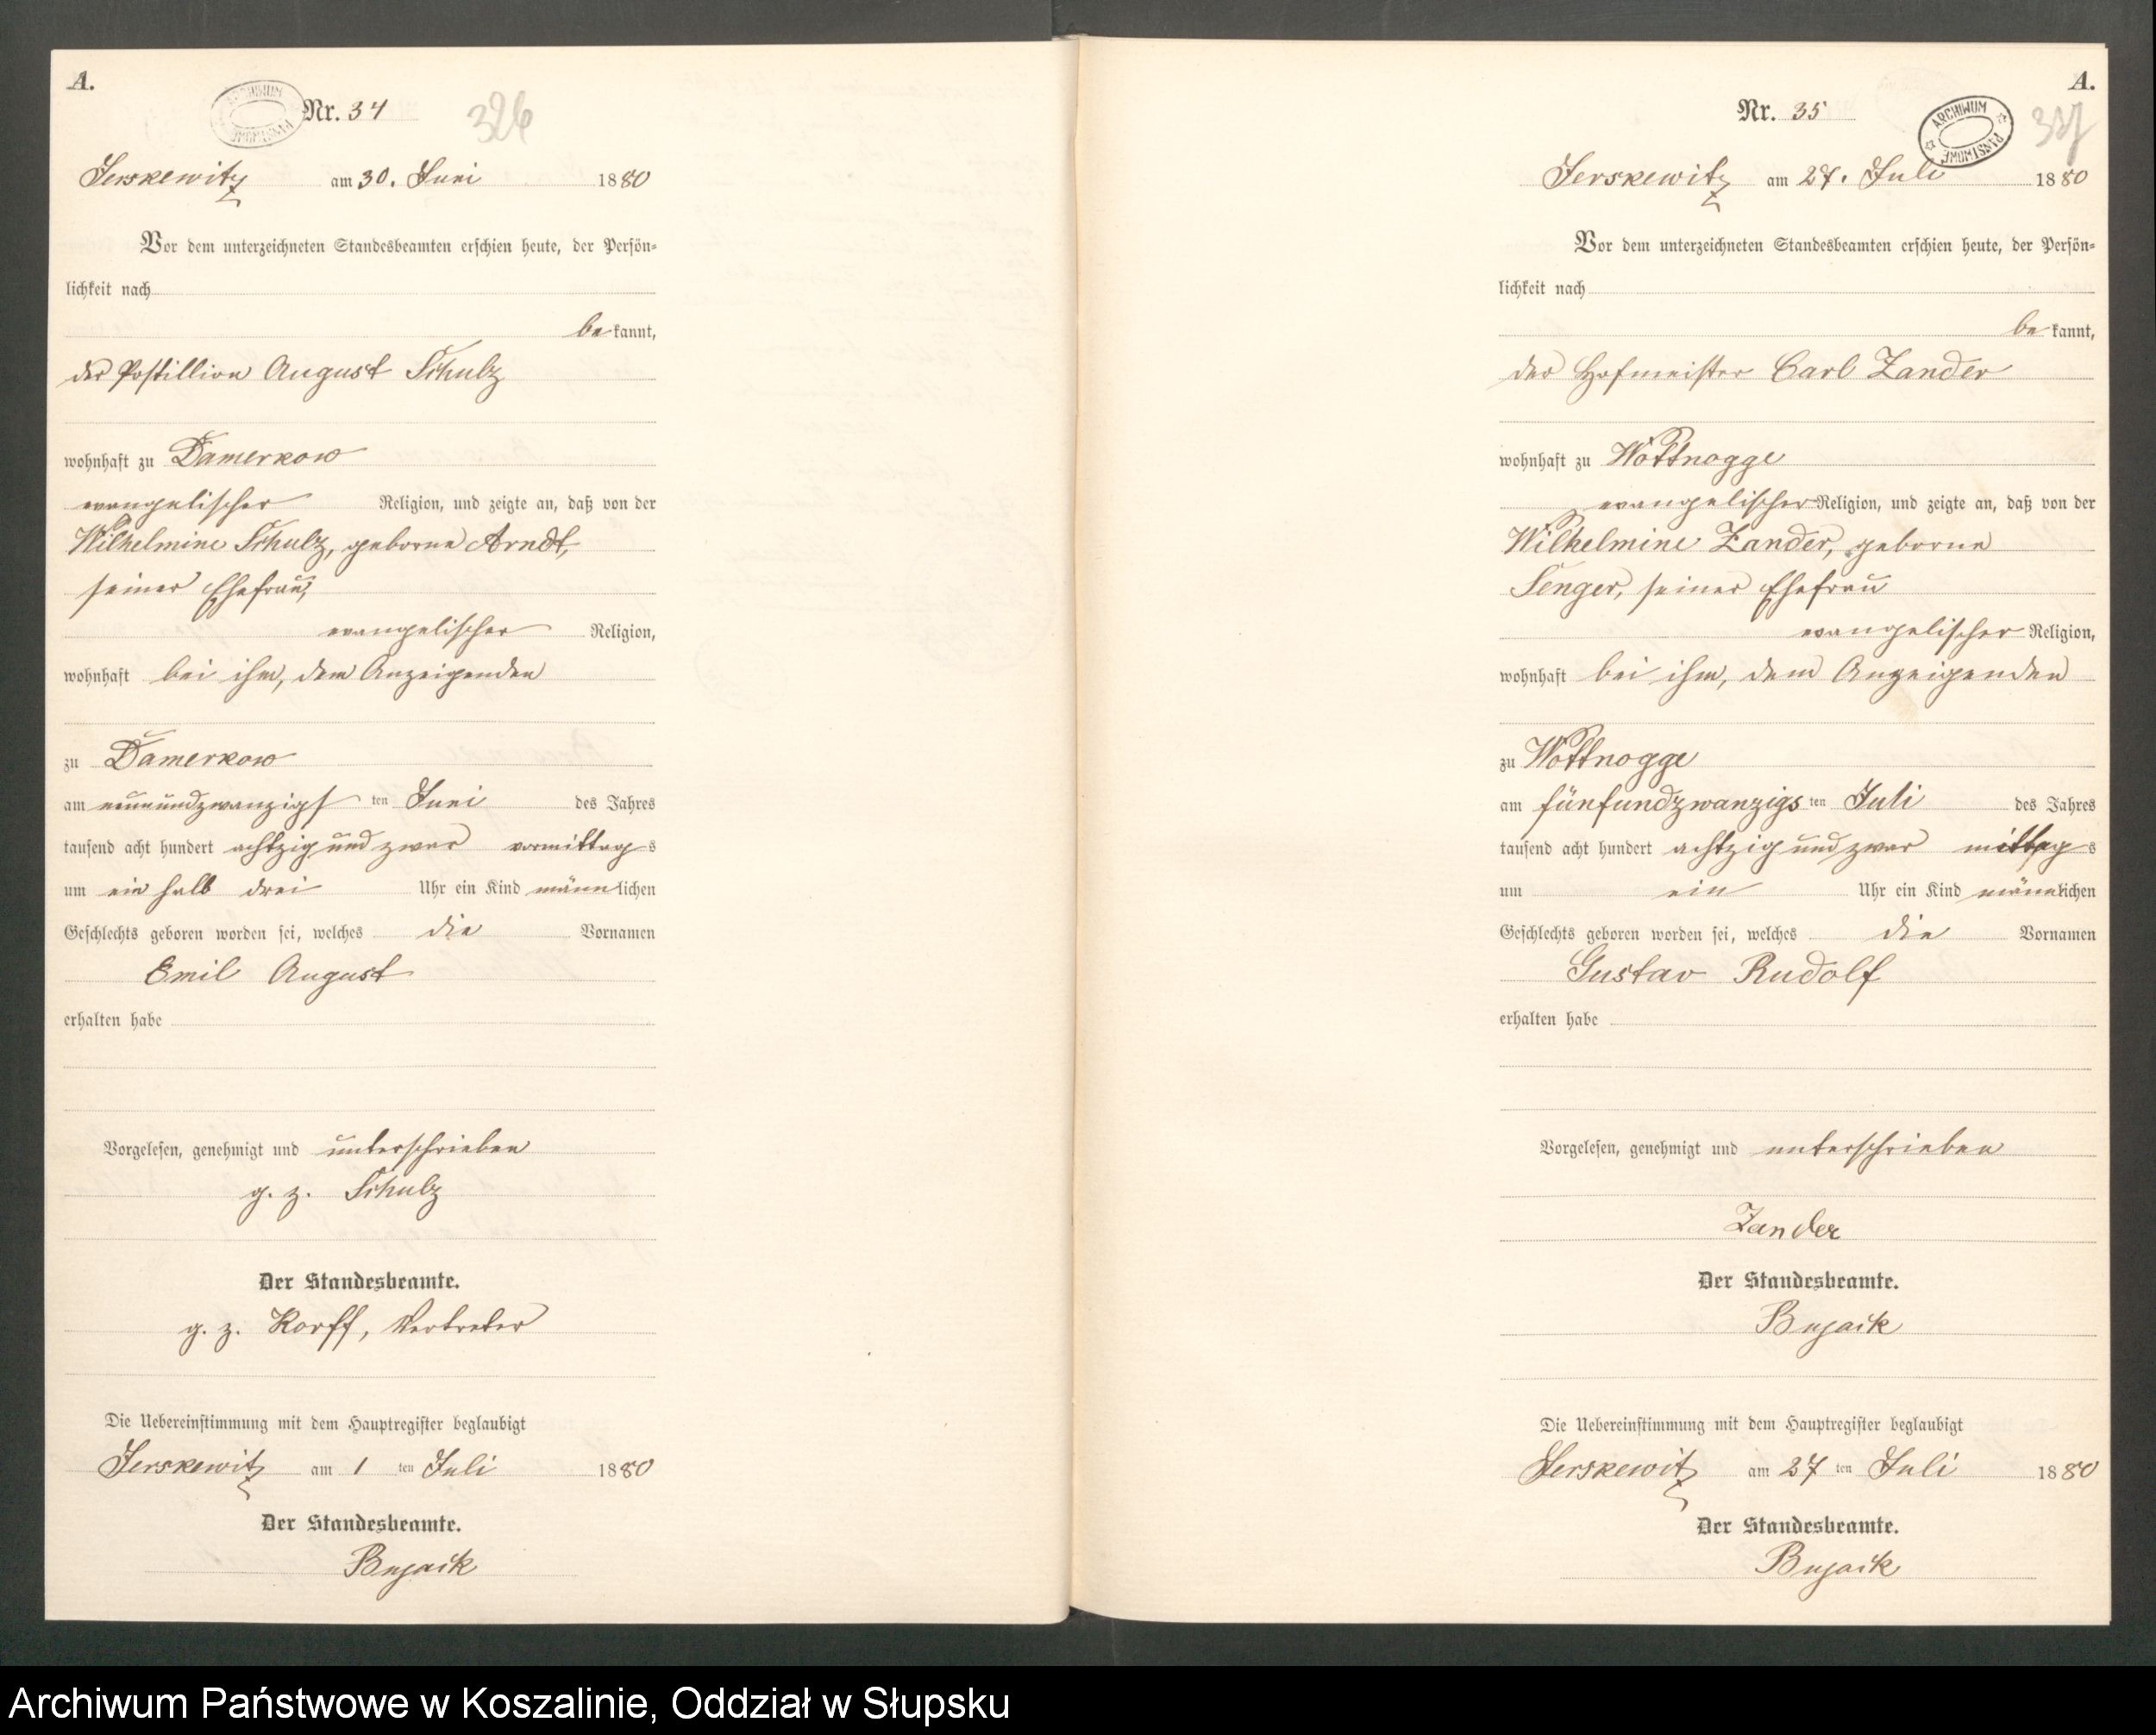 A.
ARCHIWUM PAŃSTWOWE
Nr. 34
326
Jerskewitz am 30. Juni 1880
Vor dem unterzeichneten Standesbeamten erschien heute, der Persön-
lichkeit nach
bekannt,
der Postillion August Schulz
wohnhaft zu Damerkow
evangelischer Religion, und zeigte an, daß von der
Wilhelmine Schulz, geborne Arndt,
seiner Ehefrau,
evangelischer Religion,
wohnhaft bei ihm, dem Anzeigenden
zu Damerkow
am neunundzwanzigsten Juni des Jahres
tausend acht hundert achtzig und zwar vormittags
um ein halb drei Uhr ein Kind männlichen
Geschlechts geboren worden sei, welches die Vornamen
Emil August
erhalten habe
Vorgelesen, genehmigt und unterschrieben
g. z. Schulz
Der Standesbeamte.
g. z. Korff, Vertreter
Die Uebereinstimmung mit dem Hauptregister beglaubigt
Jerskewitz am 1 ten Juli 1880
Der Standesbeamte.
Bujack
A.
Nr. 35
ARCHIWUM PAŃSTWOWE
327
Jerskewitz am 27. Juli 1880
Vor dem unterzeichneten Standesbeamten erschien heute, der Persön-
lichkeit nach
bekannt,
der Hofmeister Carl Zander
wohnhaft zu Wottnogge
evangelischer Religion, und zeigte an, daß von der
Wilhelmine Zander, geborne
Senger, seiner Ehefrau
evangelischer Religion,
wohnhaft bei ihm, dem Anzeigenden
zu Wottnogge
am fünfundzwanzigsten Juli des Jahres
tausend acht hundert achtzig und zwar mittags
um ein Uhr ein Kind männlichen
Geschlechts geboren worden sei, welches die Vornamen
Gustav Rudolf
erhalten habe
Vorgelesen, genehmigt und unterschrieben
Zander
Der Standesbeamte.
Bujack
Die Uebereinstimmung mit dem Hauptregister beglaubigt
Jerskewitz am 27 ten Juli 1880
Der Standesbeamte.
Bujack
Archiwum Państwowe w Koszalinie, Oddział w Słupsku